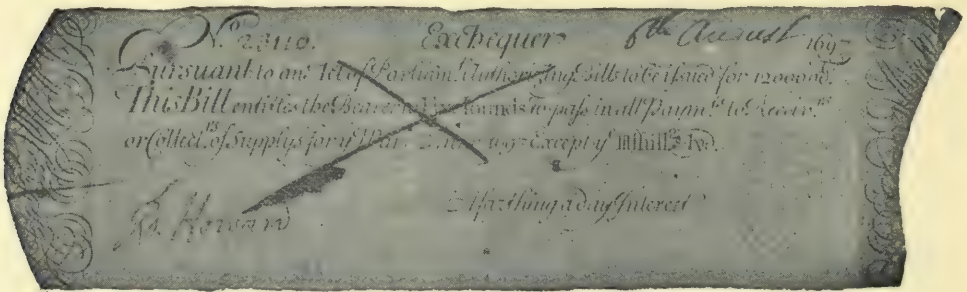 No. 23110. Exchequer 6th August 1697
Pursuant to an Act of Parliamt. Authorizing Bills to be issued for 1200000l.
This Bill entitles the Bearer to Five Pounds to pass in all Paymts. to Receivrs.
or Collectrs. of Supplys for ye Year 1697 Except ye
A farthing a day Interest
Howard